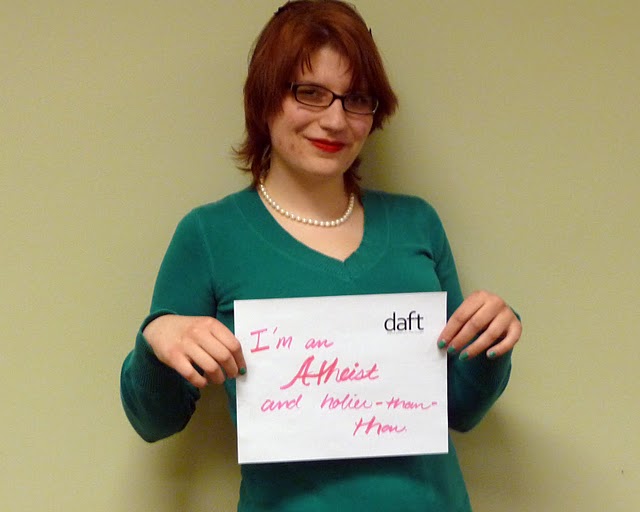 daft
I'm an
Atheist
and holier-than-
thou